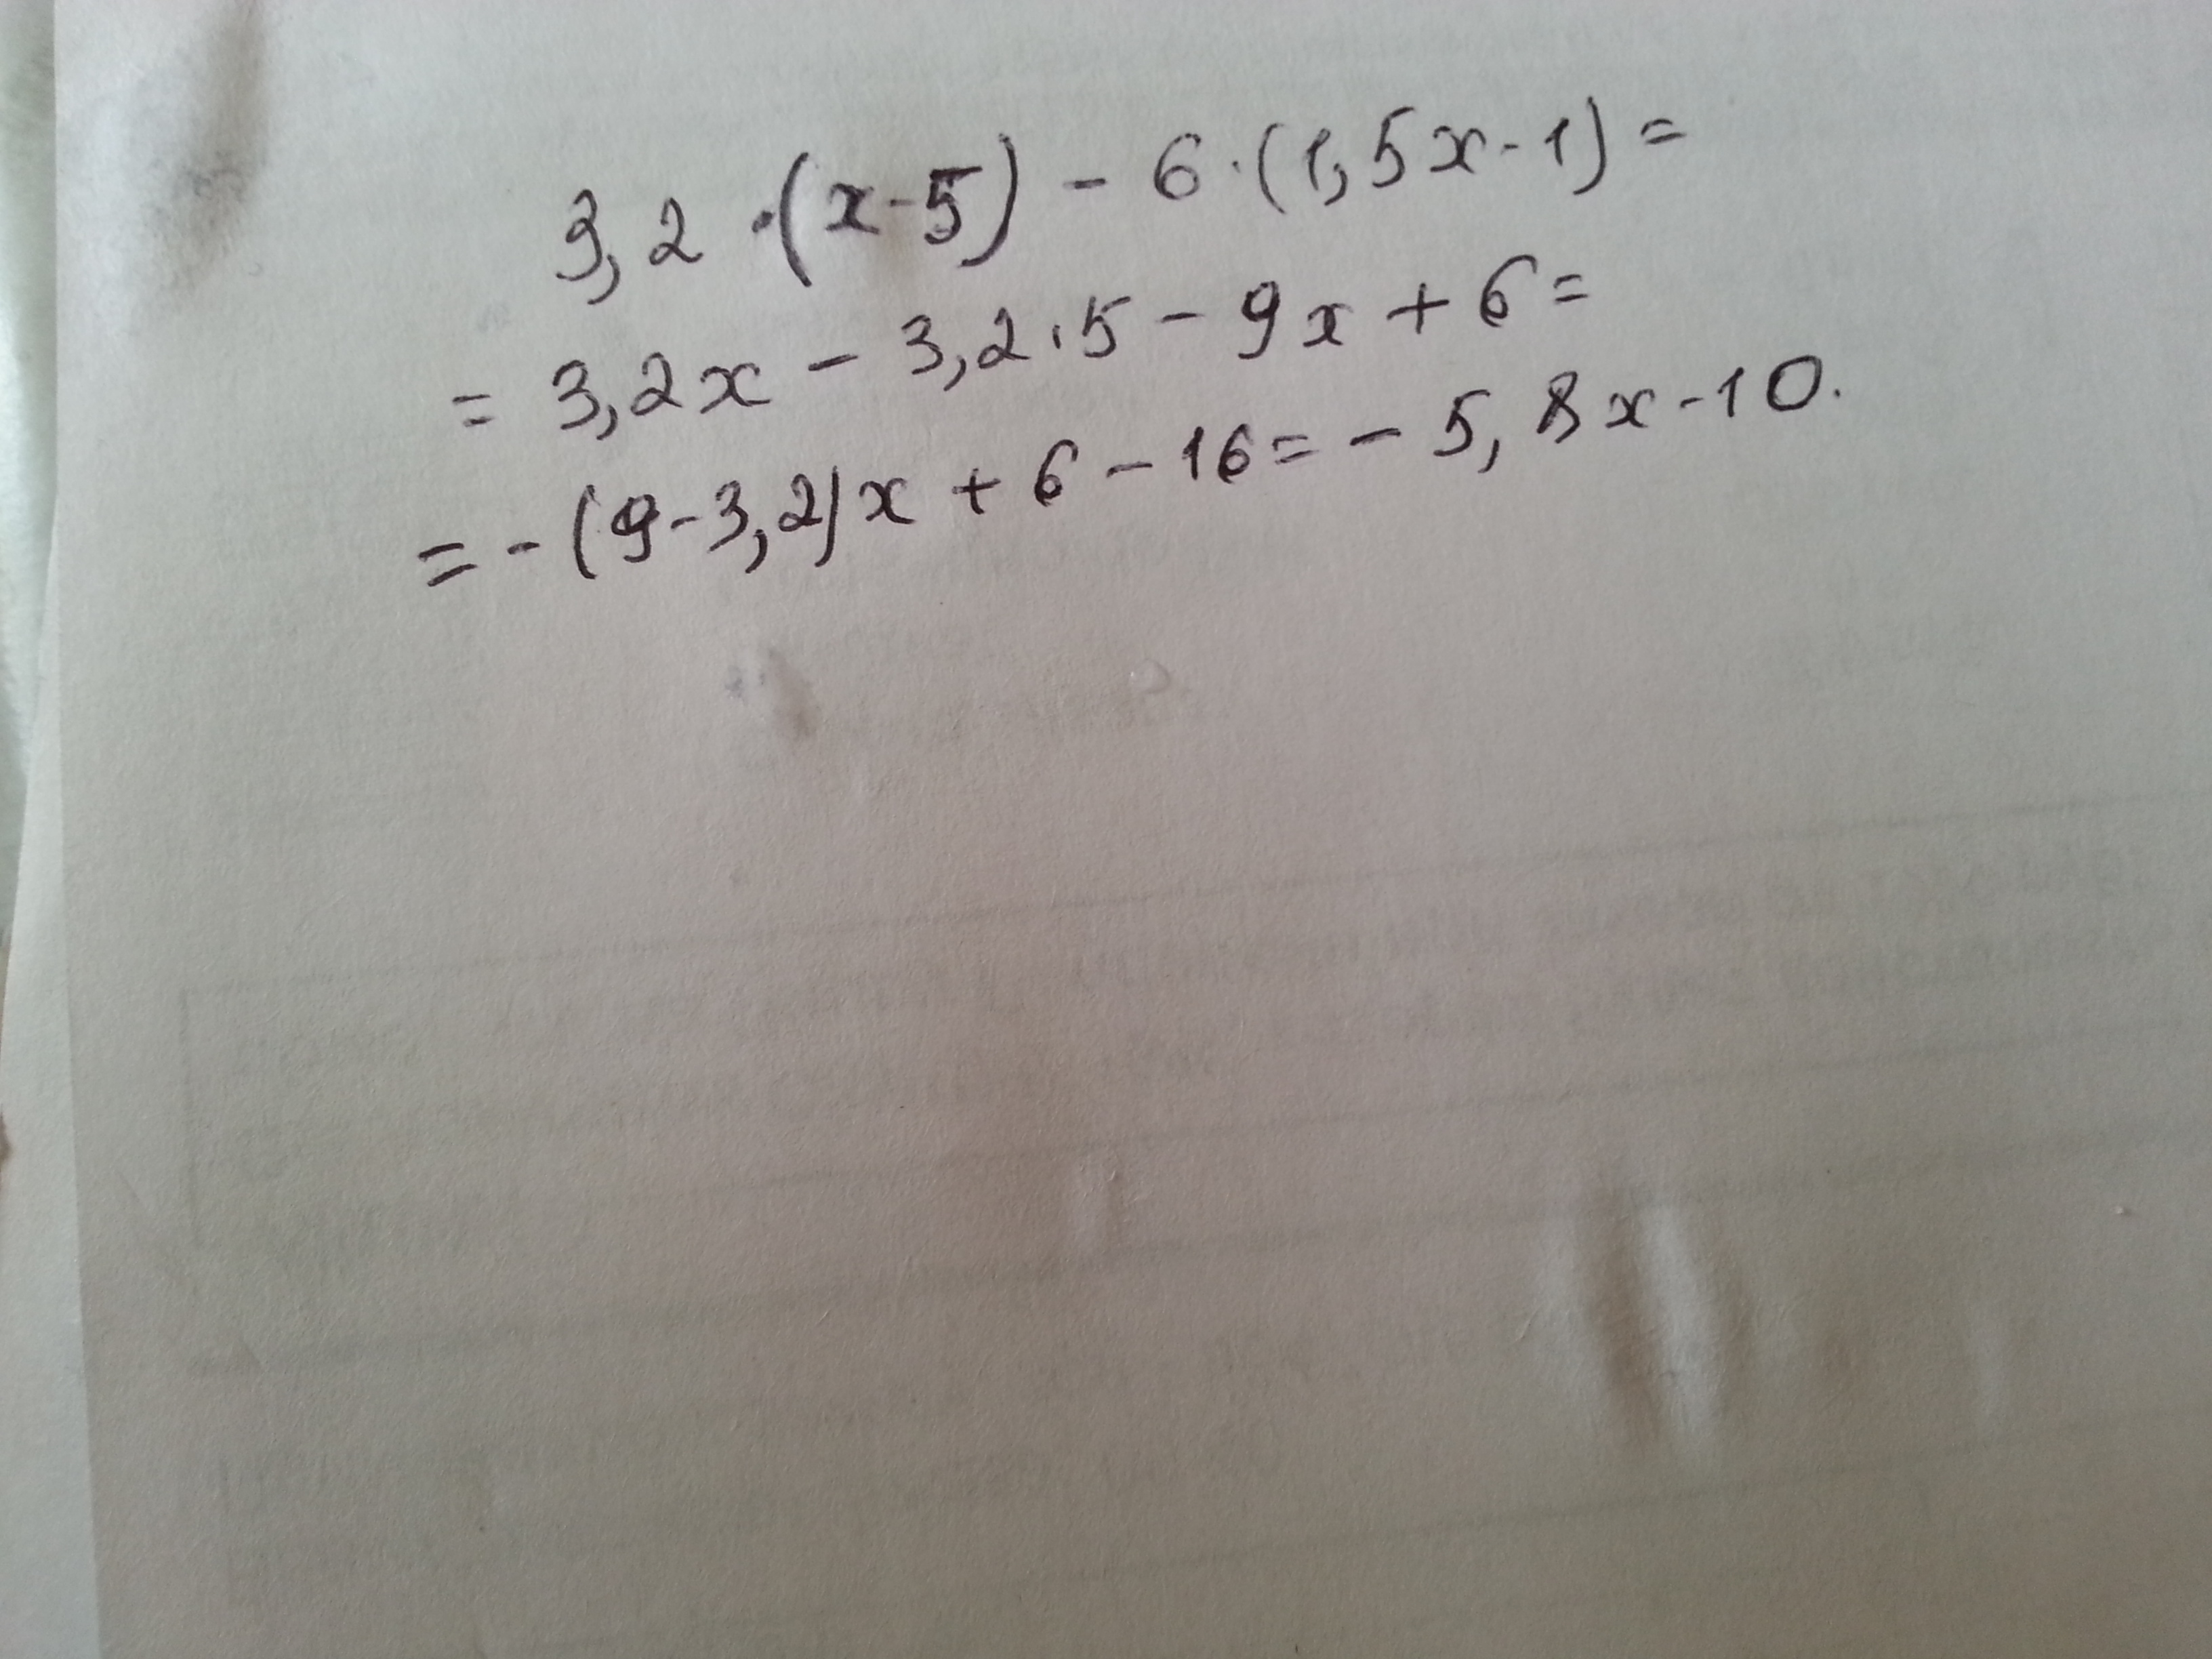 3,2 ·(x-5) - 6·(1,5x-1) =
= 3,2x - 3,2·5 - 9x + 6 =
= -(9-3,2)x + 6 - 16 = - 5,8x-10.